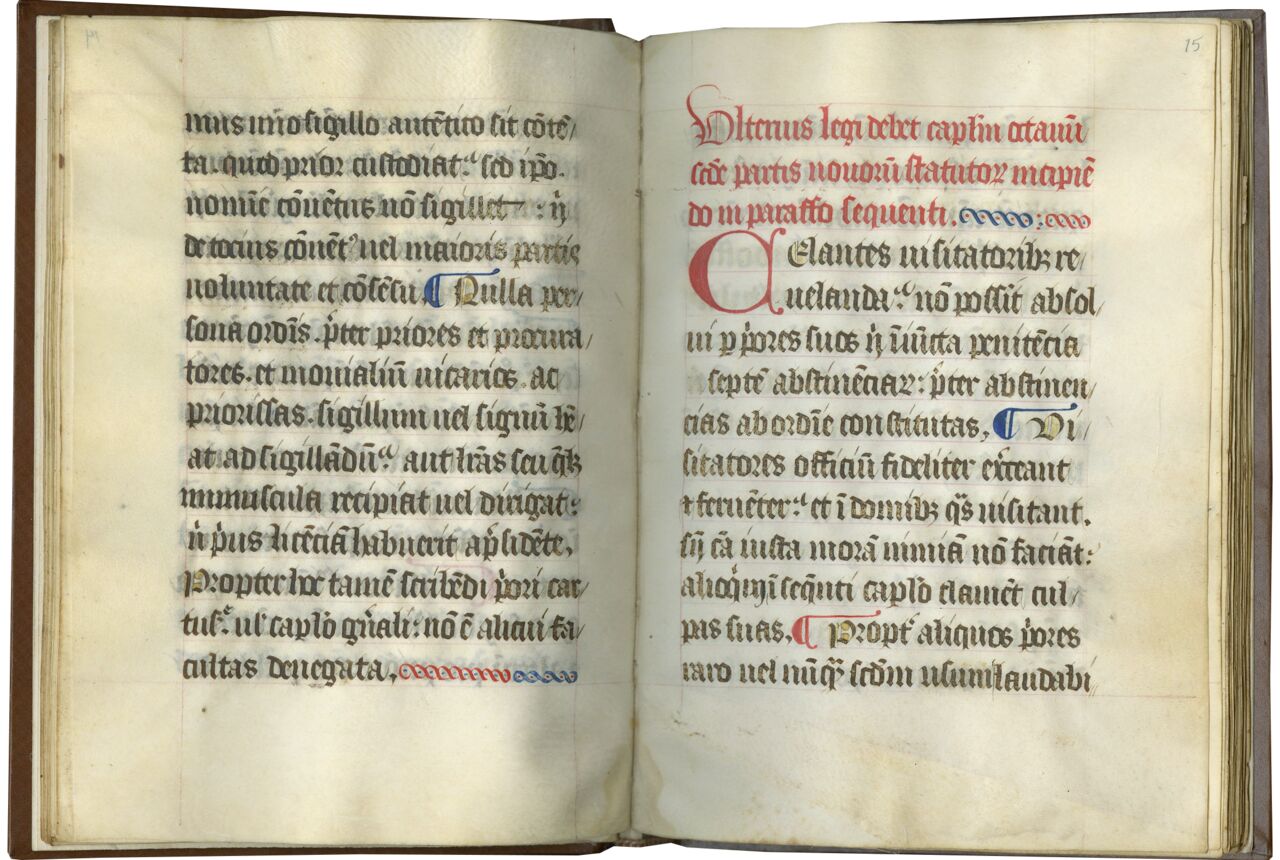 15
mus uno sigillo autētico sit cōtē/
ta. quod prior custodiat: sed ip̄o.
nomīe cōuētus nō sigillet : n̄
de tocius cōuēt9 uel maioris partis
uoluntate et cōsēsu. ¶ Nulla per/
sona ordīs. p̄ter priores et procura/
tores. et monialiū uicarios. ac
priorissas. sigillum uel signū hē/
at ad sigillādū: aut lr̄as seu q̄ꝫ
munuscula recipiat uel dirigat:
n̄ p̄us licēciā habuerit a p̄sidēte.
Propter hoc tamē scribēdi p̄ori car/
tus᷒. ul᷒ cap̄lo gn̄ali: nō ē alicui fa/
cultas denegata.
Vlterius legi debet cap̄lm octauū
scd̄e partis nouorū statutoꝝ incipiē
do in paraffo sequenti.
CElantes uisitatoribꝫ re/
uelanda: nō possīt absol/
ui ꝑ p̄ores suos n̄ īiūcta penitēcia
septē abstinēciaꝝ: p̄ter abstinen/
cias ab ordīe constitutas. ¶ Vi/
sitatores officiū fideliter ex̄ceant
⁊ feruēter: et ī domibꝫ q̄s uisitant.
sn̄ cā iusta morā nimiā nō faciāt:
alioq̄n ī seq̄nti cap̄lo clamēt cul/
pas suas. ¶ Propt̄ aliquos p̄ores
raro uel nūq̄ꝫ scd̄m usum laudabi/